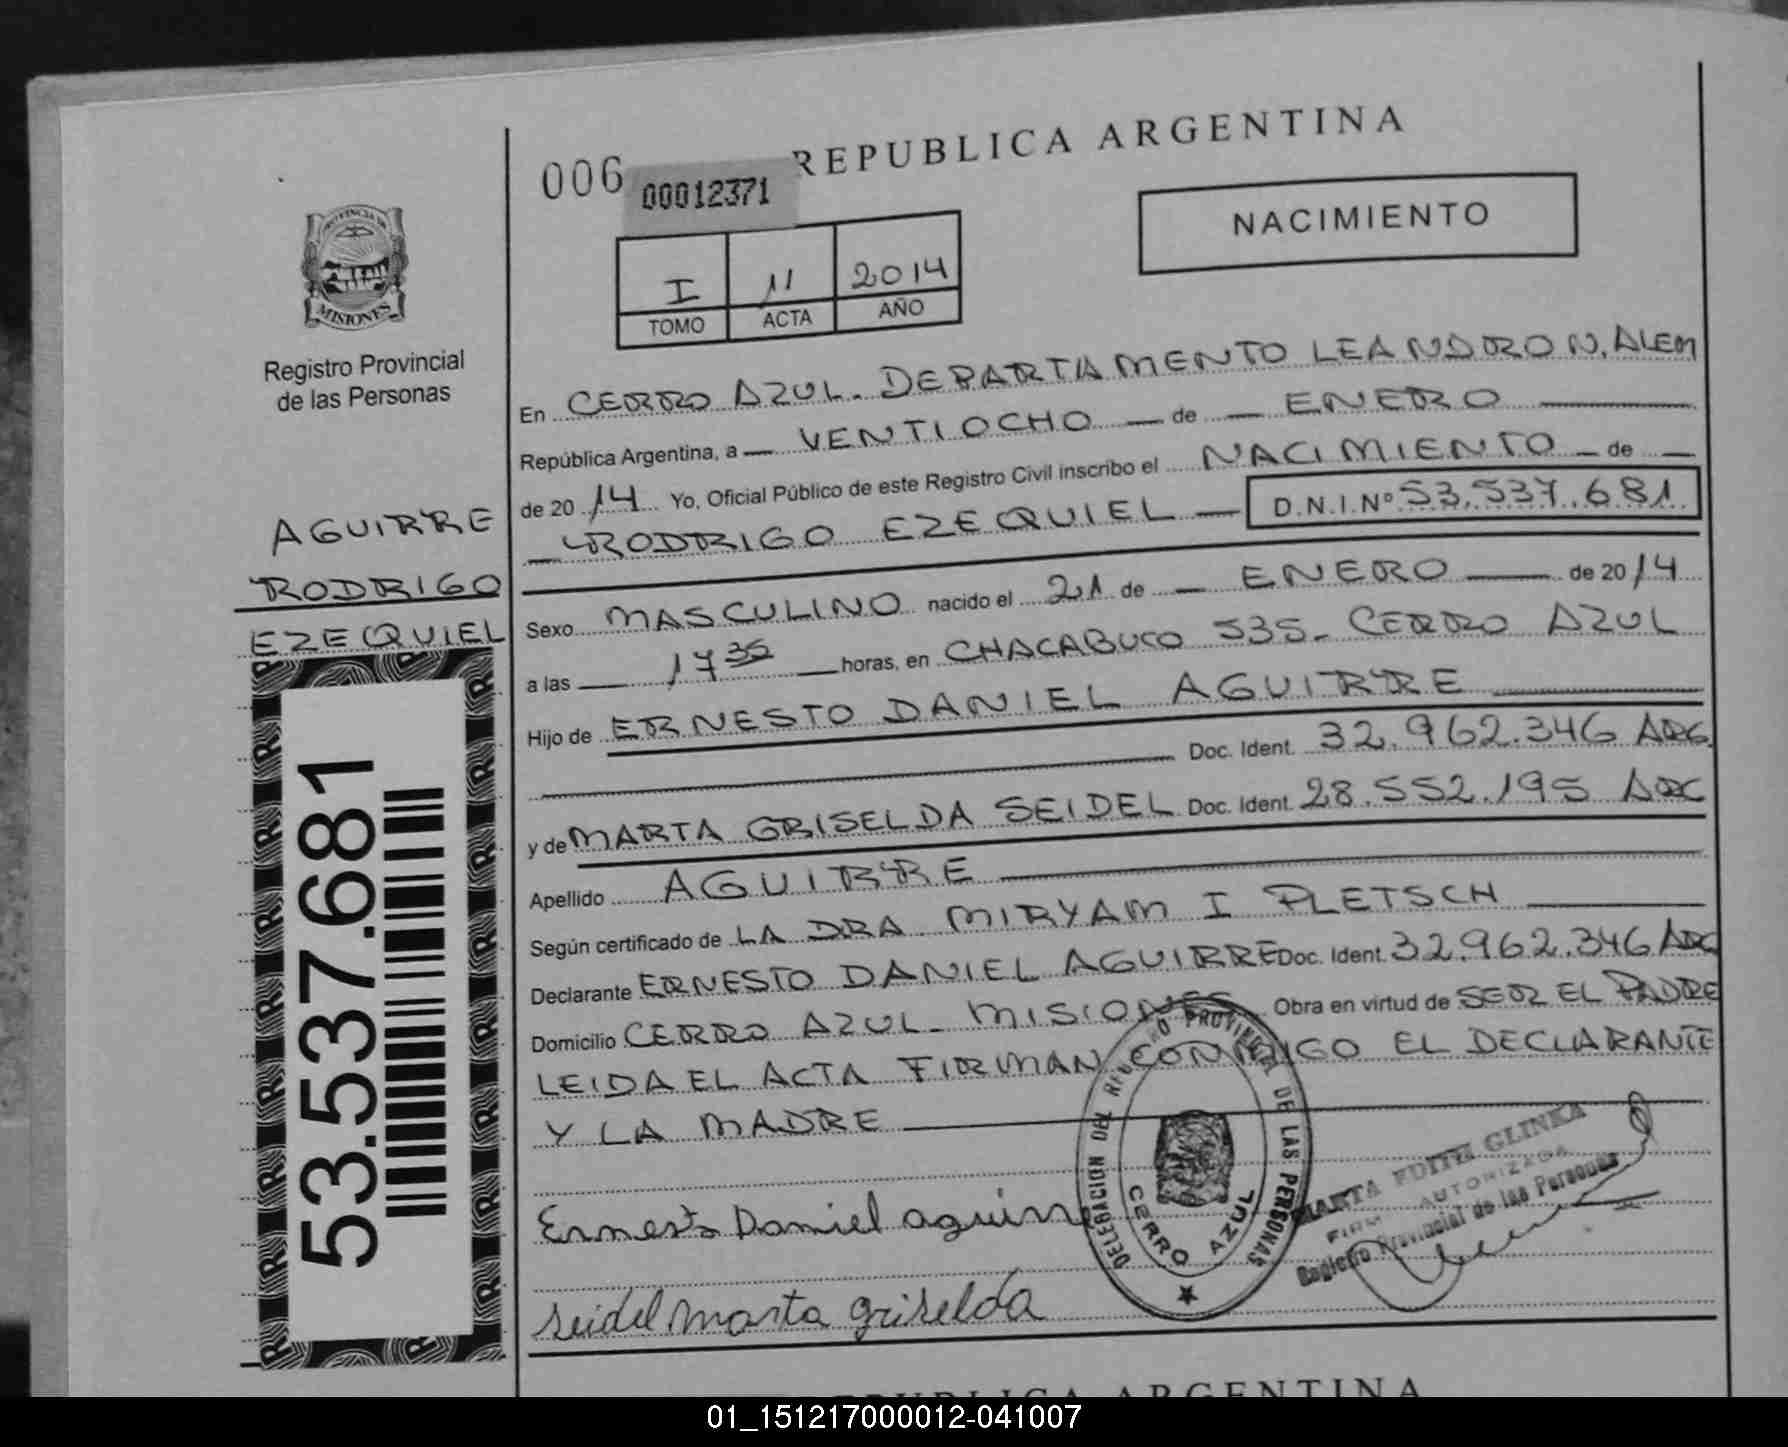 006 00012371 REPUBLICA ARGENTINA
NACIMIENTO
I 11 2014
TOMO ACTA AÑO
PROVINCIA DE
MISIONES
Registro Provincial
de las Personas
AGUIRRE
RODRIGO
EZEQUIEL
53.537.681
En CERRO AZUL. DEPARTAMENTO LEANDRO N. ALEM
República Argentina, a VENTIOCHO de ENERO
de 20 14 Yo, Oficial Público de este Registro Civil inscribo el NACIMIENTO de
RODRIGO EZEQUIEL D.N.I.Nº 53.537.681
Sexo MASCULINO nacido el 21 de ENERO de 20 14
a las 17 35 horas, en CHACABUCO 535- CERRO AZUL
Hijo de ERNESTO DANIEL AGUIRRE
Doc. Ident. 32.962.346 ARG
y de MARTA GRISELDA SEIDEL Doc. Ident. 28.552.195 ARG
Apellido AGUIRRE
Según certificado de LA DRA MIRYAM I PLETSCH
Declarante ERNESTO DANIEL AGUIRRE Doc. Ident. 32.962.346 ARG
Domicilio CERRO AZUL- MISIONES Obra en virtud de SER EL PADRE
LEIDA EL ACTA FIRMAN CONMIGO EL DECLARANTE
Y LA MADRE
Ernesto Daniel aguirre
seidel marta griselda
DELEGACION DEL REGISTRO PROVINCIAL DE LAS PERSONAS
CERRO AZUL
MARTA EDITH GLINKA
FIRMA AUTORIZADA
Registro Provincial de las Personas
REPUBLICA ARGENTINA
01_151217000012-041007